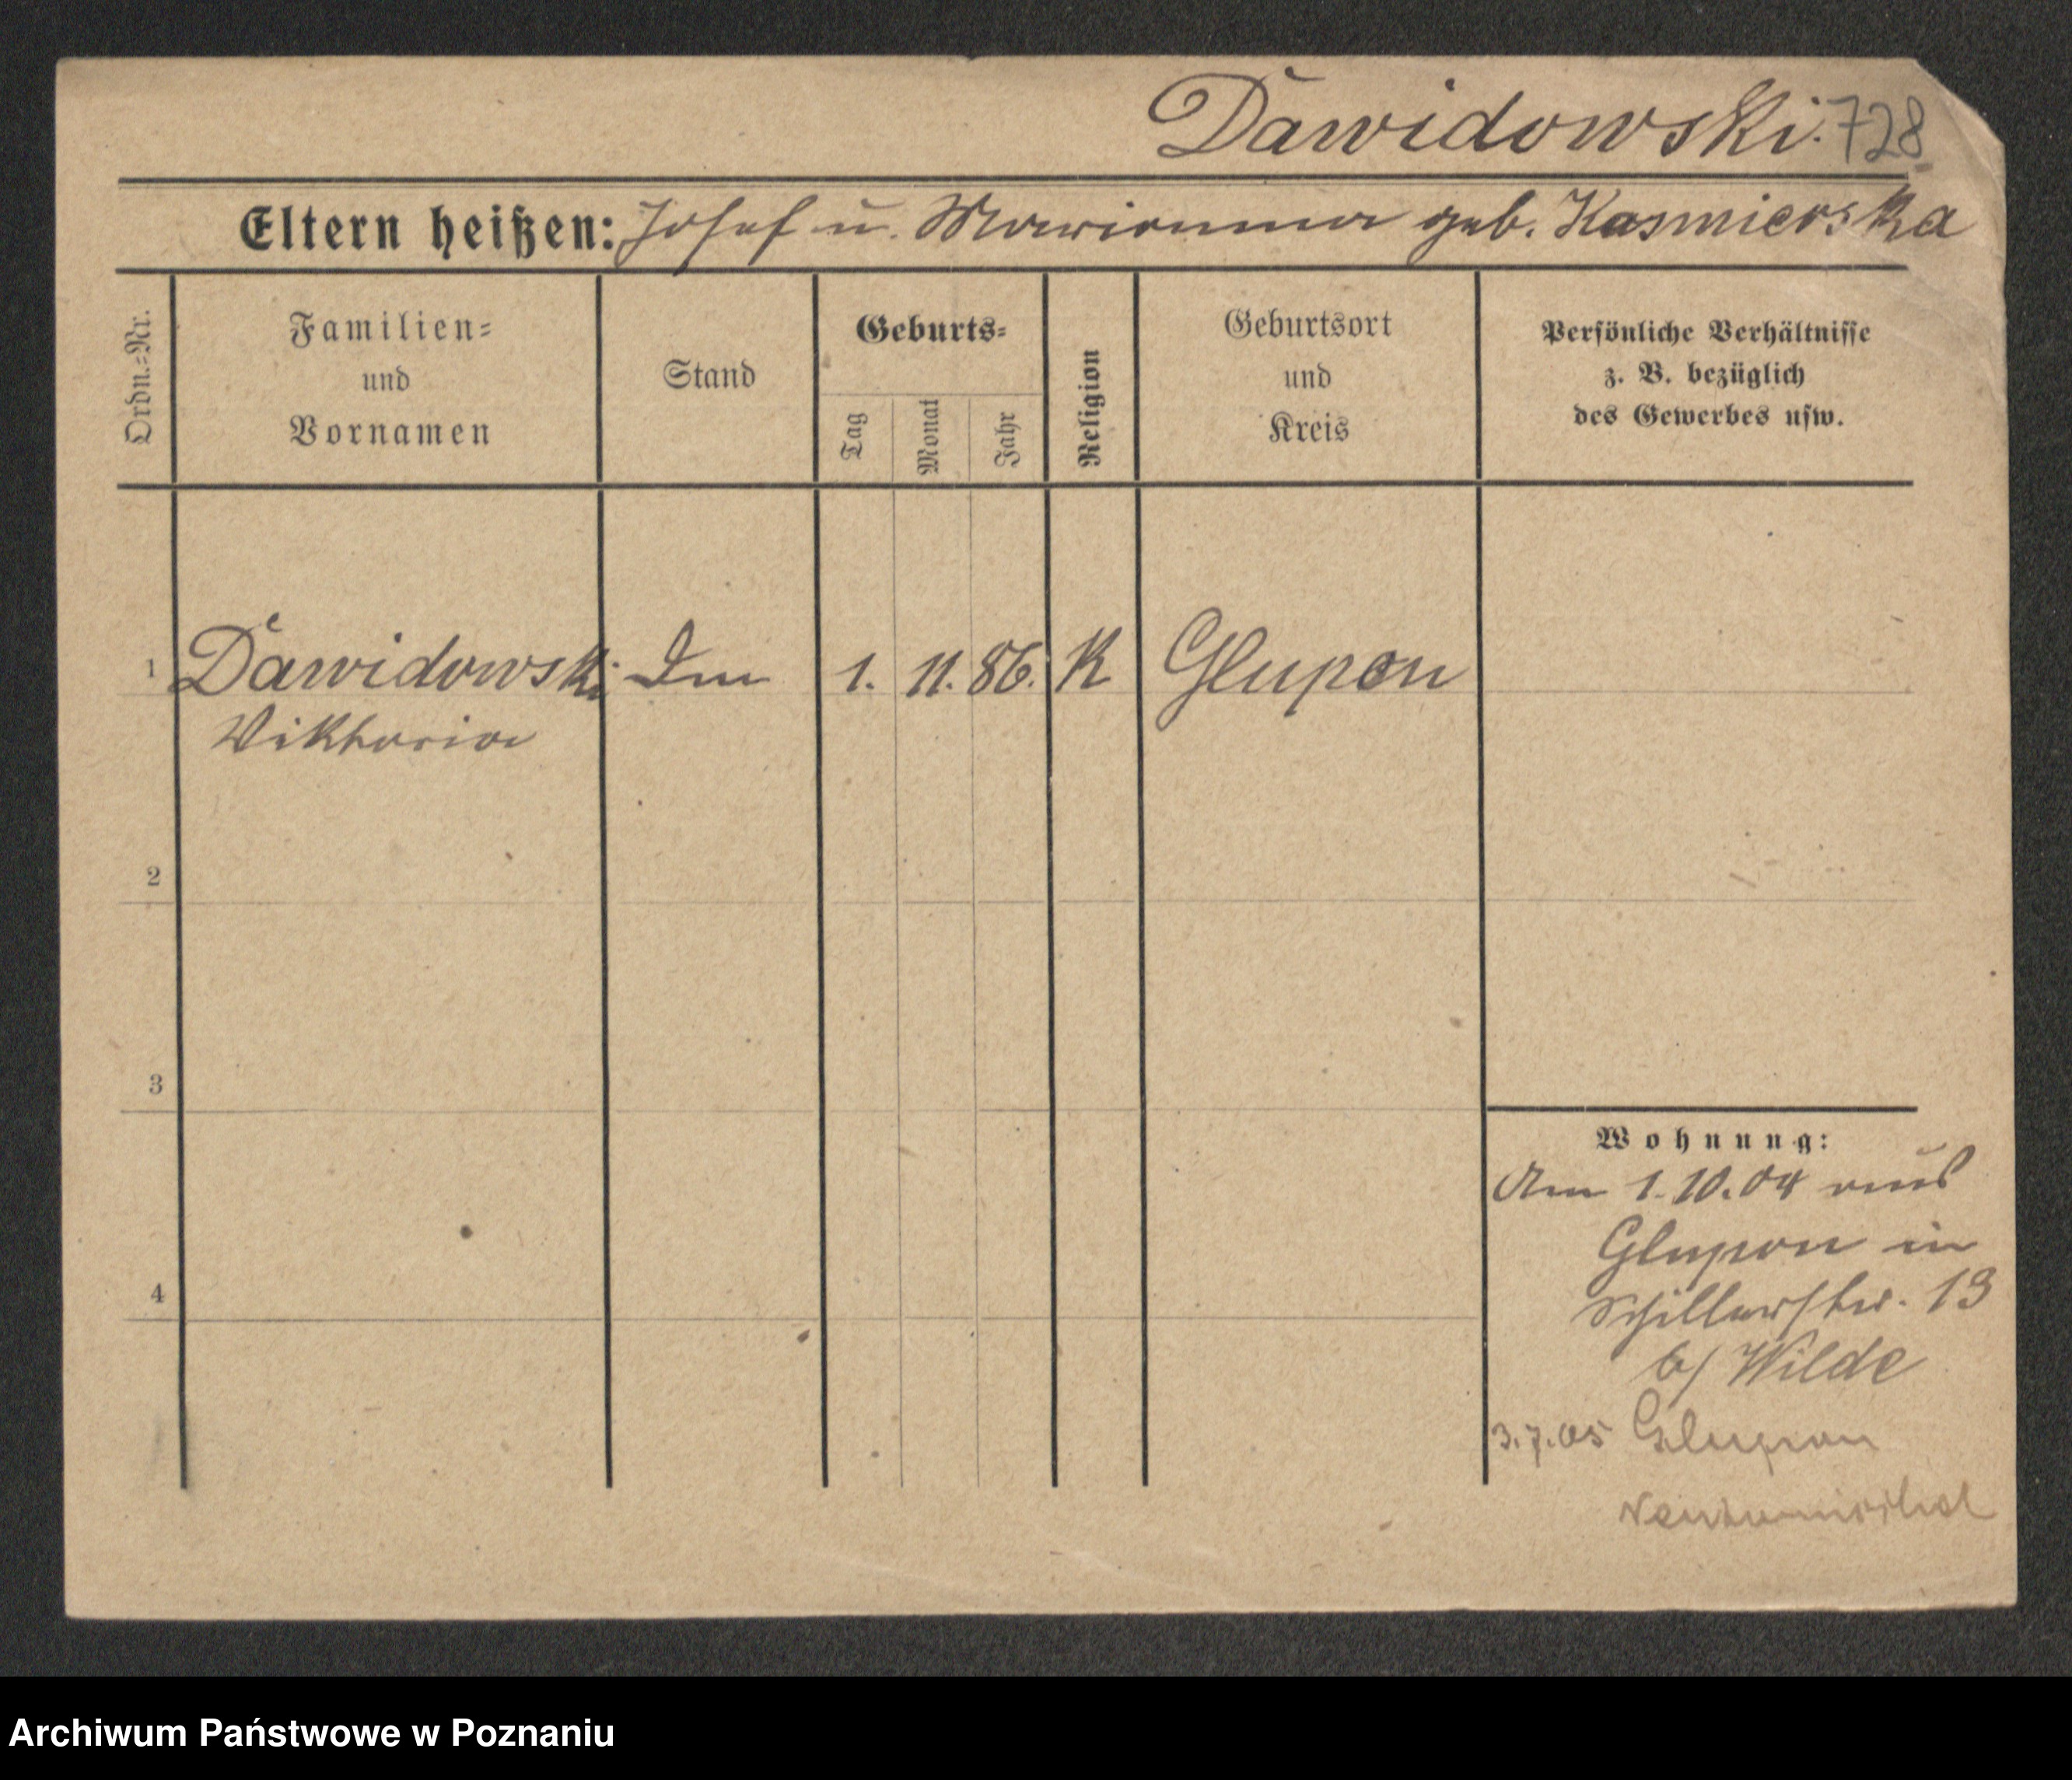 Dawidowski. 728
Eltern heißen: Josef u. Marianna geb. Kasmierska
Ordn.=Nr.
Familien=
und
Vornamen
Stand
Geburts=
Tag
Monat
Jahr
Religion
Geburtsort
und
Kreis
Persönliche Verhältnisse
z. B. bezüglich
des Gewerbes usw.
1 Dawidowski 1. 11. 86. K Glupon
Viktoria
2
3
4
Wohnung:
Am 1.10.04 aus
Glupon in
Schillerstr. 13
b/ Wilde
3.7.05 Glupon
Archiwum Państwowe w Poznaniu